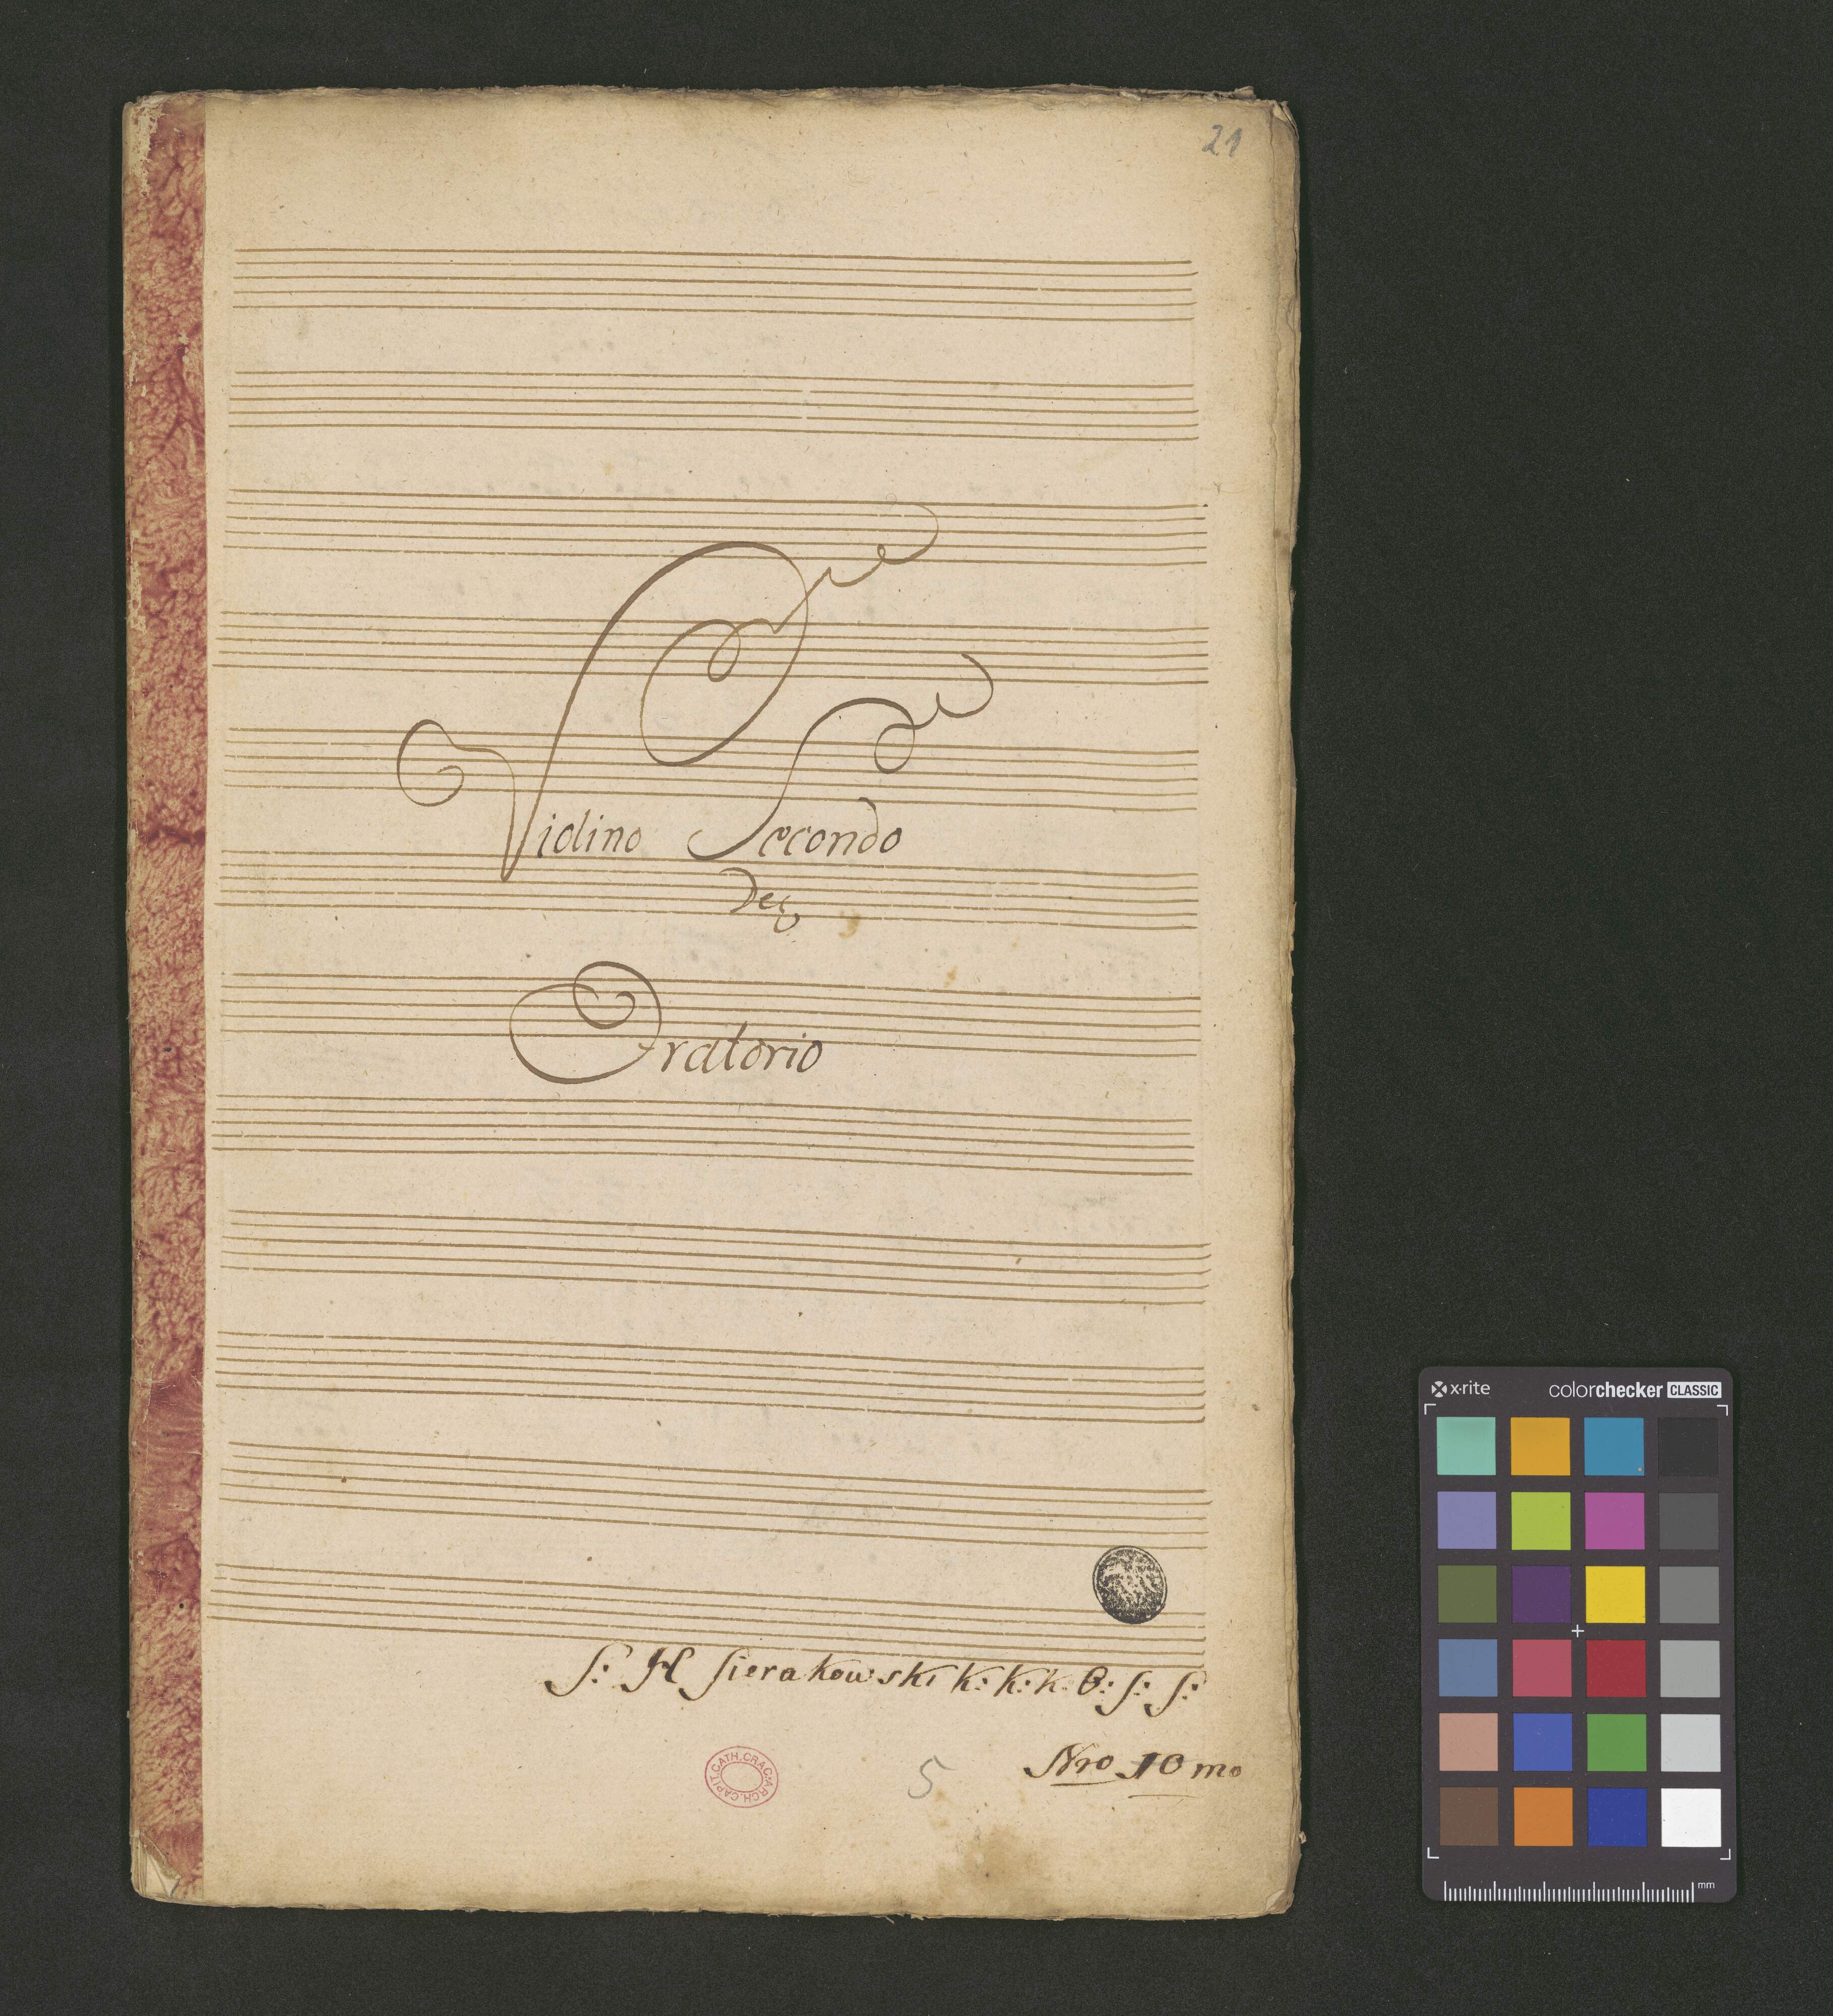 21
Violino Secondo
Del
Oratorio
S: H Sierakowski k: k: k. B: S: S:
CAPIT. CATH. CRAC. ARCH.
5
Nro 10 mo
x-rite colorchecker CLASSIC
mm